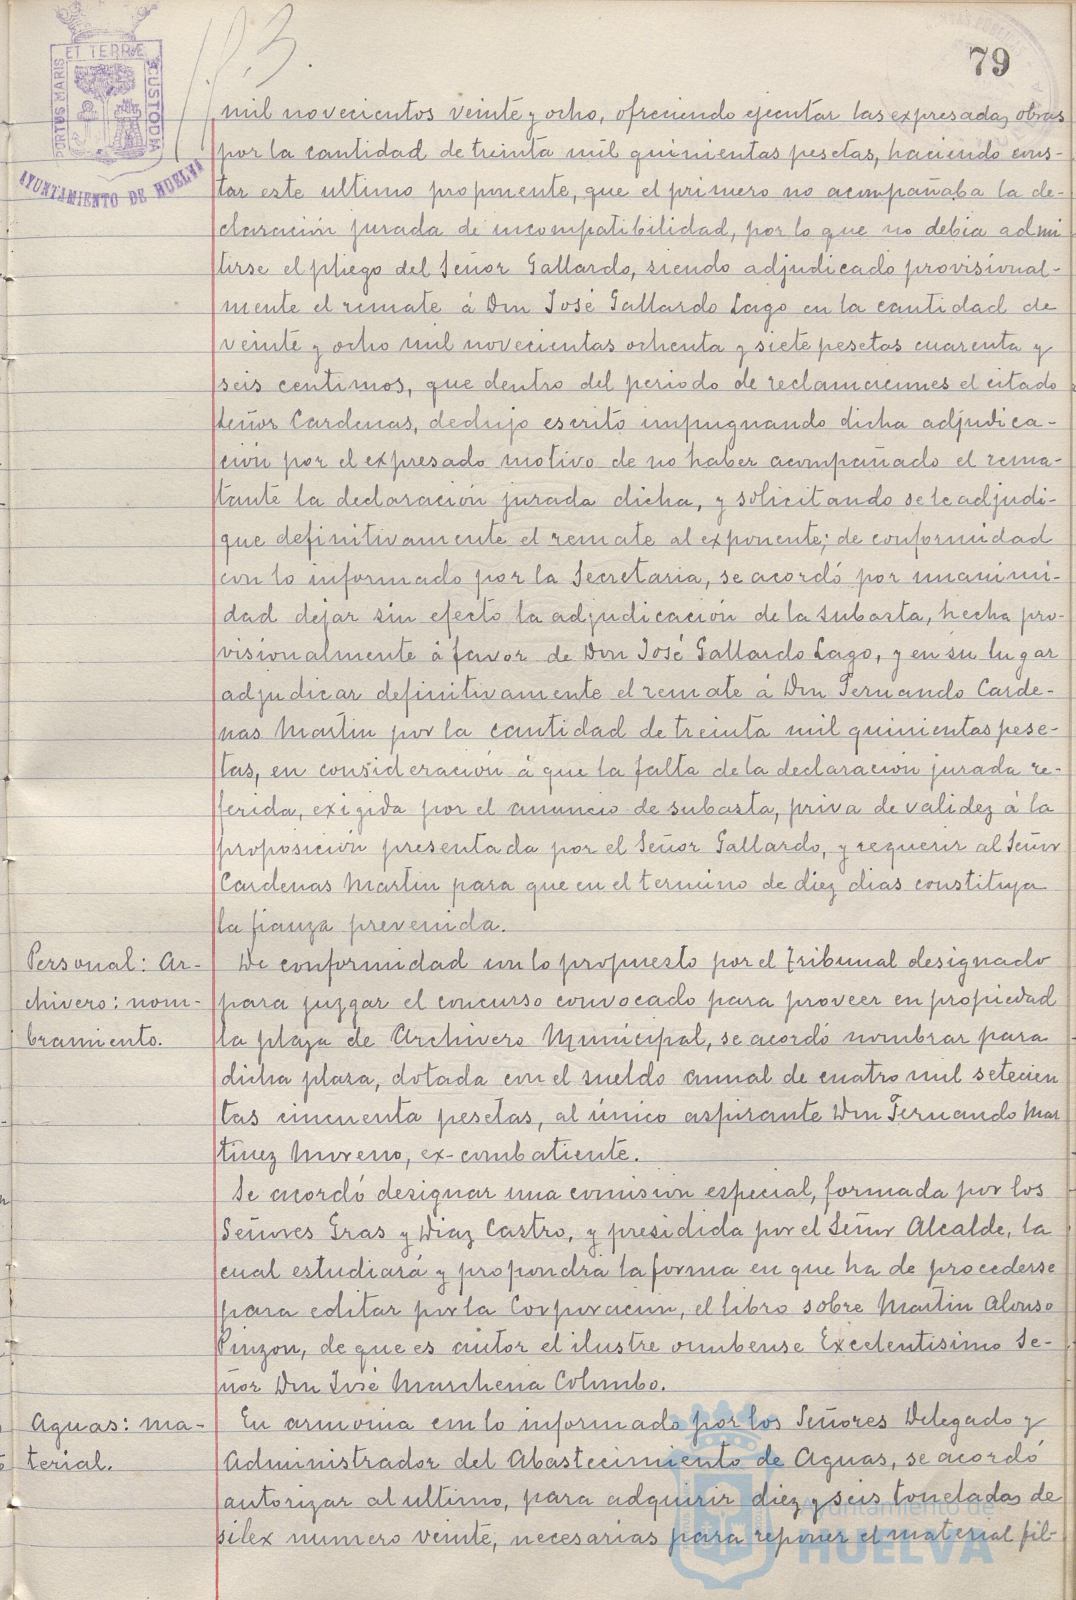 PORTUS MARIS ET TERRE CUSTODIA
AYUNTAMIENTO DE HUELVA
79
mil novecientos veinte y ocho, ofreciendo ejecutar las expresadas obras
por la cantidad de treinta mil quinientas pesetas, haciendo cons-
tar este ultimo proponente, que el primero no acompañaba la de-
claración jurada de incompatibilidad, por lo que no debia admi
tirse el pliego del Señor Gallardo, siendo adjudicado provisional-
mente el remate á Don José Gallardo Lago en la cantidad de
veinte y ocho mil novecientas ochenta y siete pesetas cuarenta y
seis centimos, que dentro del periodo de reclamaciones el citado
Señor Cardenas, dedujo escrito impugnando dicha adjudica-
ción por el expresado motivo de no haber acompañado el rema-
tante la declaración jurada dicha, y solicitando se le adjudi-
que definitivamente el remate al exponente; de conformidad
con lo informado por la Secretaria, se acordó por unanimi-
dad dejar sin efecto la adjudicación de la subasta, hecha pro-
visionalmente á favor de Don José Gallardo Lago, y en su lugar
adjudicar definitivamente el remate á Don Fernando Carde-
nas Martin por la cantidad de treinta mil quinientas pese-
tas, en consideración á que la falta de la declaración jurada re-
ferida, exigida por el anuncio de subasta, priva de validez á la
proposición presentada por el Señor Gallardo, y requerir al Señor
Cardenas Martin para que en el termino de diez dias constituya
la fianza prevenida.
Personal: Ar-
chivero: nom-
bramiento.
De conformidad con lo propuesto por el tribunal designado
para juzgar el concurso convocado para proveer en propiedad
la plaza de Archivero Municipal, se acordó nombrar para
dicha plaza, dotada con el sueldo anual de cuatro mil setecien
tas cincuenta pesetas, al único aspirante Don Fernando Mar
tinez Moreno, ex-combatiente.
Se acordó designar una comision especial, formada por los
Señores Gras y Diaz Castro, y presidida por el Señor Alcalde, la
cual estudiará y propondrá la forma en que ha de procederse
para editar por la Corporación, el libro sobre Martin Alonso
Pinzon, de que es autor el ilustre onubense Excelentisimo Se-
ñor Don José Marchena Colombo.
Aguas: ma-
terial.
En armonia con lo informado por los Señores Delegado y
Administrador del Abastecimiento de Aguas, se acordó
autorizar al ultimo, para adquirir diez y seis toneladas de
silex numero veinte, necesarias para reponer el material fil-
Ayuntamiento de
HUELVA